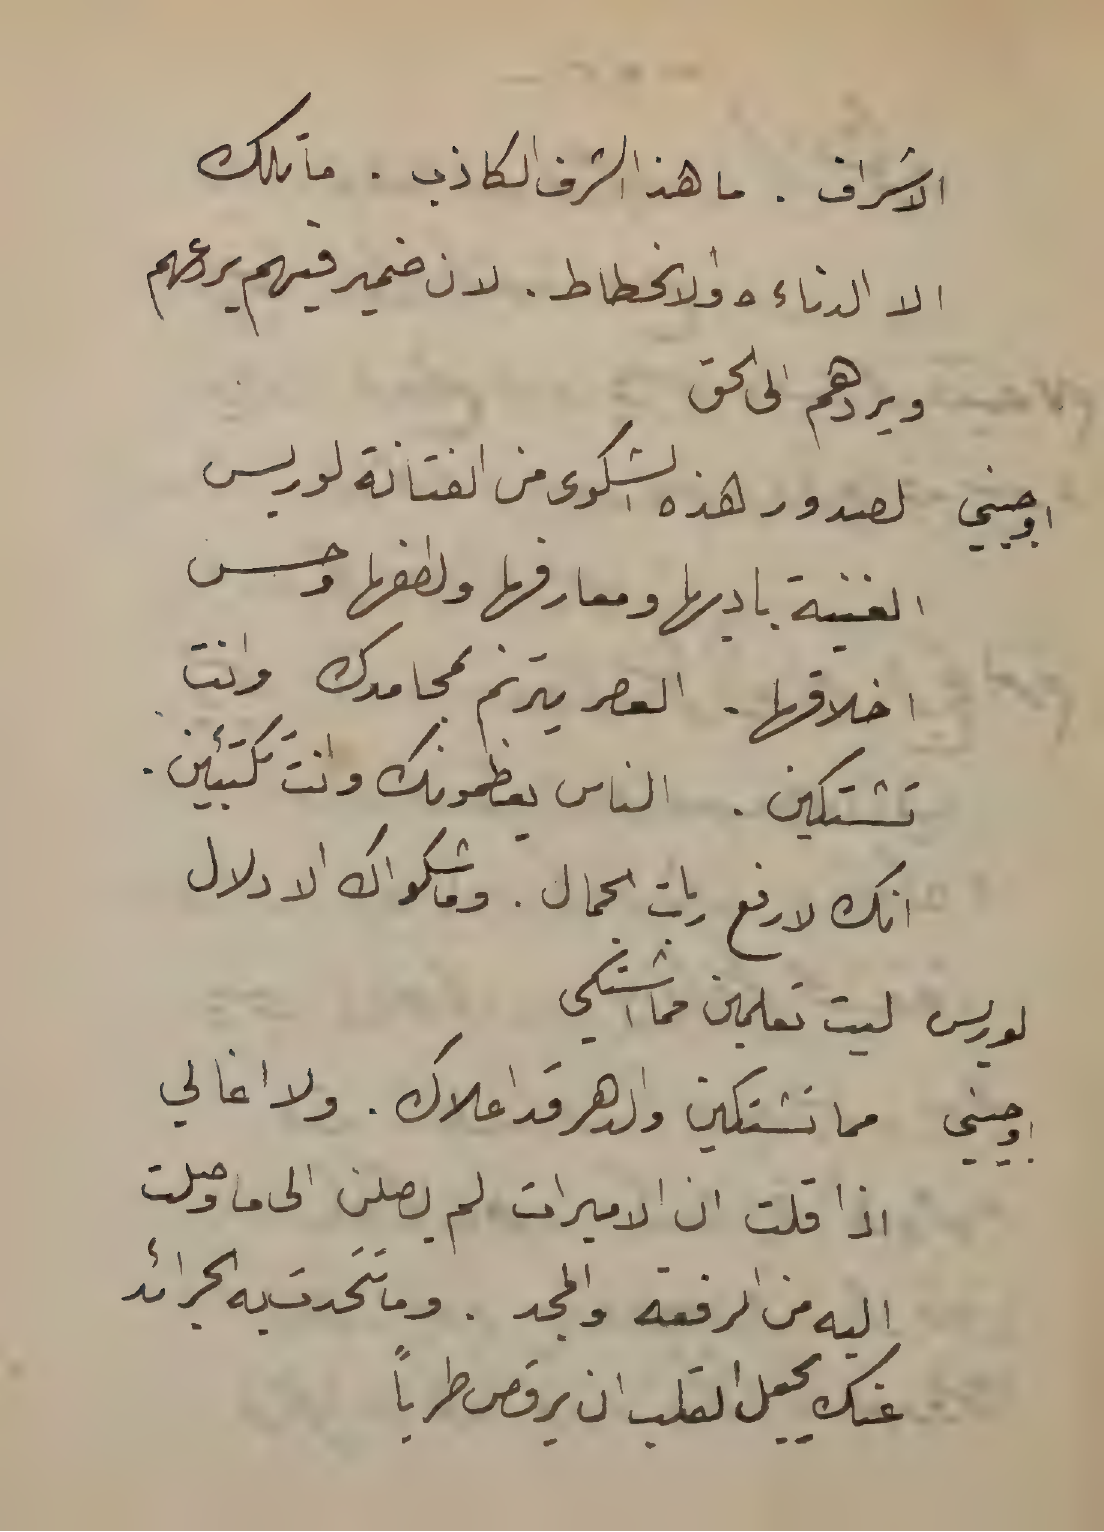 الاشراف . ما هذا الشرف الكاذب . ما تلك
الا الدناءه والانحطاط . لان ضمير فيهم يردعهم
ويردهم الى الحق
اوجيني لصدور هذه الشكوى من الفتانة لوريس
الغنية بادبها ومعارفها ولطفها وحسن
اخلاقها . العصر يترنم بمحامدك وانت
تشتكين . الناس يعظمونك وانتَ تكتَئبين .
انك لارفع ربات الجمال . وما شكواك الا دلال
لوريس ليت تعلمين مما اشتكي
اوجيني مما تشتكين والدهر قد اعلاك . ولا اغالي
اذا قلت ان الاميرات لم يصلن الى ما وصلت
اليه من الرفعة والمجد . وما تتَحدث به الجرائد
عنك يجعل القلب ان يرقص طرباً